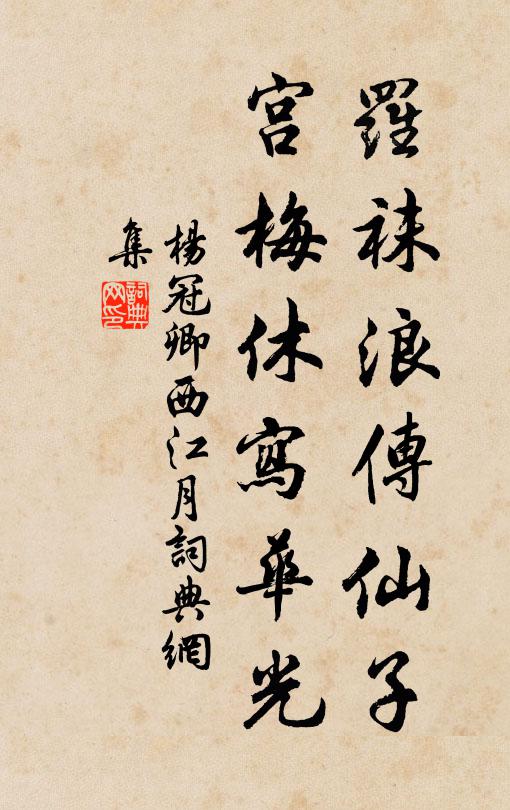 羅袜浪傳仙子
宮梅休寫華光
楊冠卿西江月詞典網
集
詞典
网印